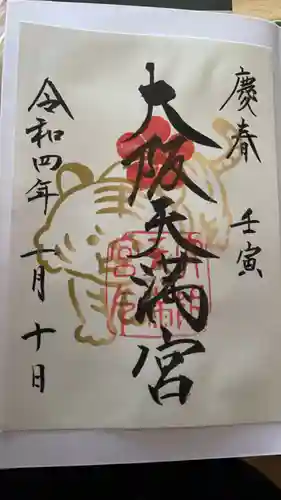 慶春 壬寅
大阪天満宮
令和四年一月十日